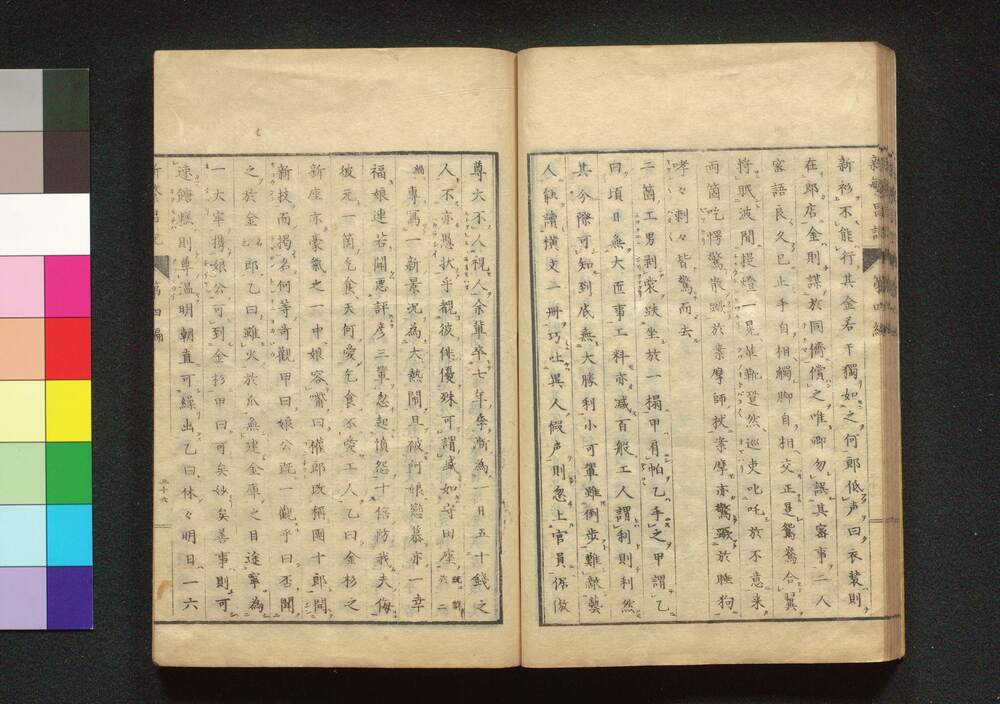 新衫不能行其金若干獨如之何郎低声曰衣裝則
在郎店金則謀於同儕償之唯卿勿誤其密事二人
密語良久已止手自相觸脚自相交正是鴛鴦合翼
將眠波間提燈一晃革靴跫然巡吏叱咤於不意来
両箇吃愕驚散蹶於按摩師拭按摩亦驚蹶於睡狗
哮々刺々皆驚而去
二箇工男剥蒙趺坐於一榻甲有帕乙手之甲謂乙
曰頃日無大匠事工料亦減百般工人謂利則利然
其分際可知到底無大勝利小可輩雖倒歩難敵藝
人能讀横文二冊巧吐異人假声則忽上官員保傲
尊大不人視人余輩卒七年季漸為一日五十錢之
人不亦愚状乎覩彼俳優殊可謂感如守田座既號二
專寫一新景况為大熱閙且被阿娘戀慕亦一幸
福娘連若開悪評彦三輩忽起憤怨十倍防我夫侮
彼元一箇乞食天何愛乞食不愛工人乙曰金杉之
新座亦豪氣之一申娘容曰權郎改稱團十郎開
新技而揭名何等奇觀甲曰娘公既一觀乎曰否聞
之於金郎乙曰雖火於爪無建金庫之目遂寧為
一大牢携娘公可到金杉甲曰可矣妙矣善事則可
速饍糕則尊温明朝直可繰出乙曰休々明日一六
第四編
三十六